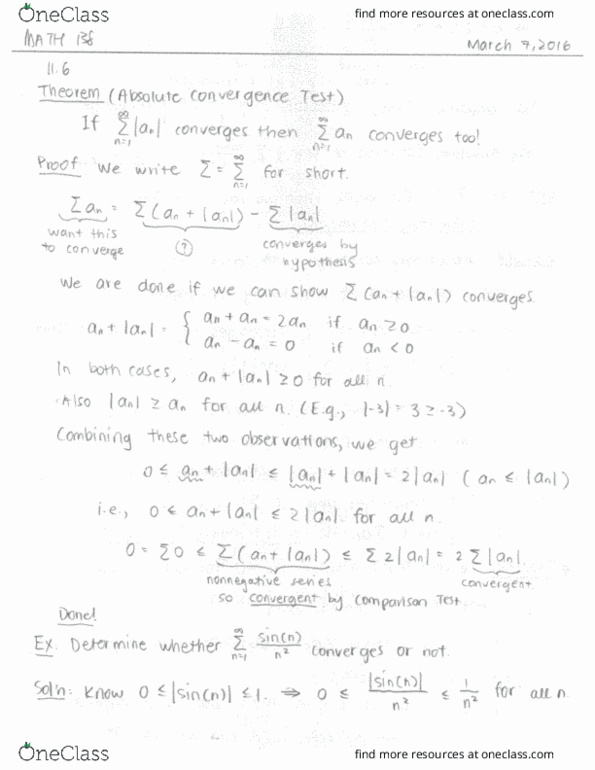 OneClass find more resources at oneclass.com
MATH 138 March 7, 2016
11.6
Theorem (Absolute Convergence Test)
If ∑_{n=1}^∞ |aₙ| converges then ∑_{n=1}^∞ aₙ converges too!
Proof: We write ∑ = ∑_{n=1}^∞ for short.
∑aₙ = ∑(aₙ + |aₙ|) - ∑|aₙ|
want this to converge ? converges by hypothesis
We are done if we can show ∑(aₙ + |aₙ|) converges.
aₙ + |aₙ| = { aₙ + aₙ = 2aₙ if aₙ ≥ 0
aₙ - aₙ = 0 if aₙ < 0
In both cases, aₙ + |aₙ| ≥ 0 for all n.
Also |aₙ| ≥ aₙ for all n. (E.g., |-3| = 3 ≥ -3)
Combining these two observations, we get
0 ≤ aₙ + |aₙ| ≤ |aₙ| + |aₙ| = 2|aₙ| (aₙ ≤ |aₙ|)
i.e., 0 ≤ aₙ + |aₙ| ≤ 2|aₙ| for all n.
0 = ∑0 ≤ ∑(aₙ + |aₙ|) ≤ ∑2|aₙ| = 2∑|aₙ|.
nonnegative series convergent
so convergent by Comparison Test.
Done!
Ex. Determine whether ∑_{n=1}^∞ sin(n)/n² converges or not.
Sol'n: Know 0 ≤ |sin(n)| ≤ 1. ⇒ 0 ≤ |sin(n)|/n² ≤ 1/n² for all n.
OneClass find more resources at oneclass.com